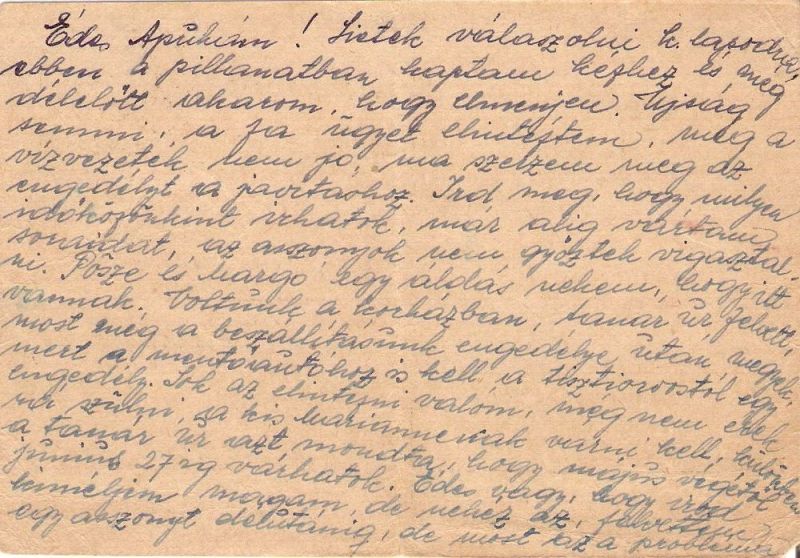 Édes Apukám! Sietek válaszolni k. lapodra,
ebben a pillanatban kaptam kézhez és még
délelőtt akarom, hogy elmenjen. Ujság
semmi, a fa ügyet elintéztem, még a
vízvezeték nem jó, ma szerzem meg az
engedélyt a javitáshoz. Ird meg, hogy milyen
időközönkint irhatok, már alig vártam
soraidat, az asszonyok nem győztek vigasztal-
ni. Pösze és Margó egy áldás nekem, hogy itt
vannak. Voltunk a kórházban, tanár úr felvett,
most még a beszállitásunk engedélye után megyek,
mert a mentőautóhoz is kell a tisztiorvostól egy
engedély. Sok az elintézni valóm, még nem érek
rá szülni, a kis Mariannenak várni kell, különben
a tanár úr azt mondta, hogy május végétől
junius 27-ig várhatok. Édes vagy, hogy irod
kiméljem magam, de nehéz az,
egy asszonyt délutánig, de most az a probléma